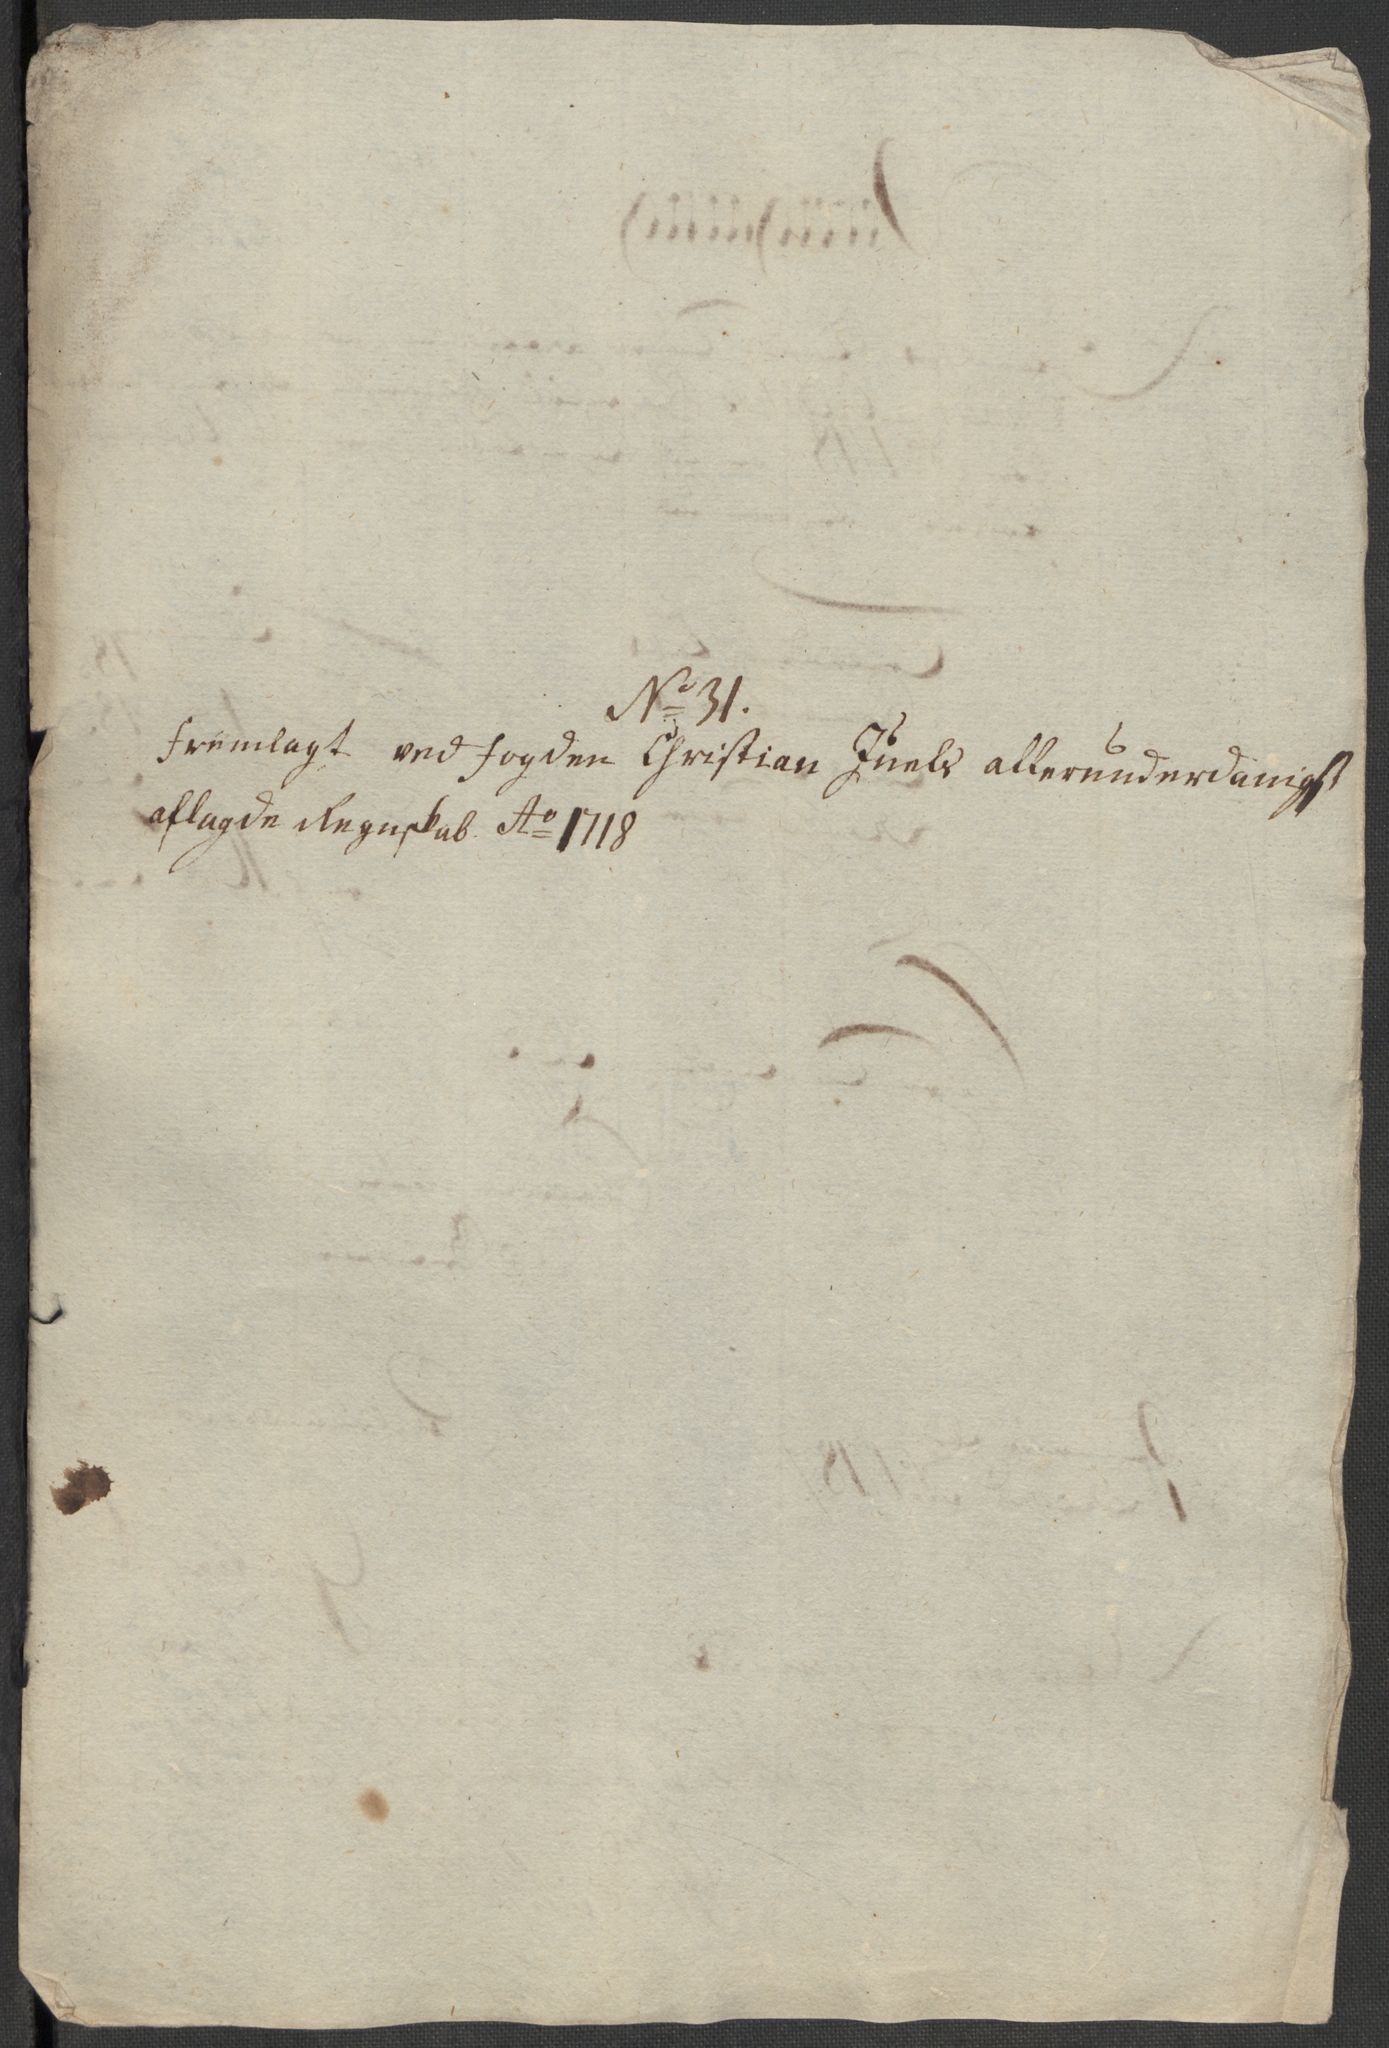 No 31.
fremlagt ved fogden Christian Juels allerunderdanigst
aflagde Regnskab Ao 1718